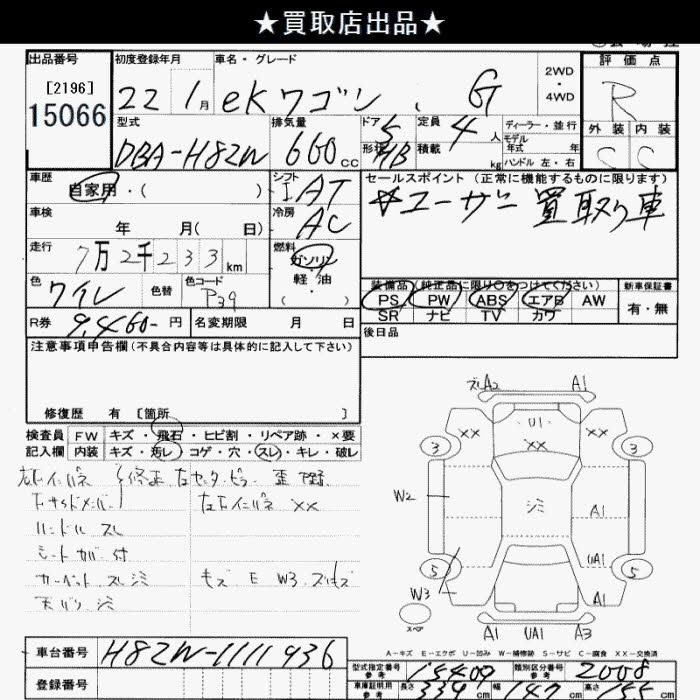 ★買取店出品★
出品番号
[2196]
15066
初度登録年月
22 1月
車名・グレード
ekワゴン G
2WD
・
4WD
評価点
R
外装 内装
C C
型式
DBA-H82W
排気量
660cc
ドア 5
形状 HB
定員 4人
積載 kg
ディーラー・並行
モデル
年式 年
ハンドル 左・右
車歴
自家用・( )
シフト
I AT
車検
年 月( 日)
冷房
AC
走行
7万2千233km
燃料
ガソリン
軽油
( ・ )
色
ワイレ
色替
色コード
P39
R券 9,460-円
名変期限 月 日
セールスポイント(正常に機能するものに限ります)
☆ユーザー買取り車
装備品(純正品に限り○をつけてください)
PS PW ABS エアB AW
SR ナビ TV カワ
新車保証書
有・無
後日品
注意事項申告欄(不具合内容等は具体的に記入して下さい)
修復歴 有 [箇所 ]
検査員 FW キズ・飛石・ヒビ割・リペア跡・×要
記入欄 内装 キズ・汚レ・コゲ・穴・スレ・キレ・破レ
ハンドル スレ
シートカバー付
カーペット スレ シミ
キズ E W3
ズレ A2 A1
U1
×× ×× ××
3 3
W2
シミ
A1
UA1
5 5
W3
スペア
A1 UA1 A3
A-キズ E-エクボ U-凹み W-補修跡 S-サビ C-腐食 ××-交換済
車台番号 H82W-1111936
登録番号
型式指定番号
参考
15409
類別区分番号
参考
2008
車庫証明用
参考
長さ 339cm 幅 147cm 高さ 155cm